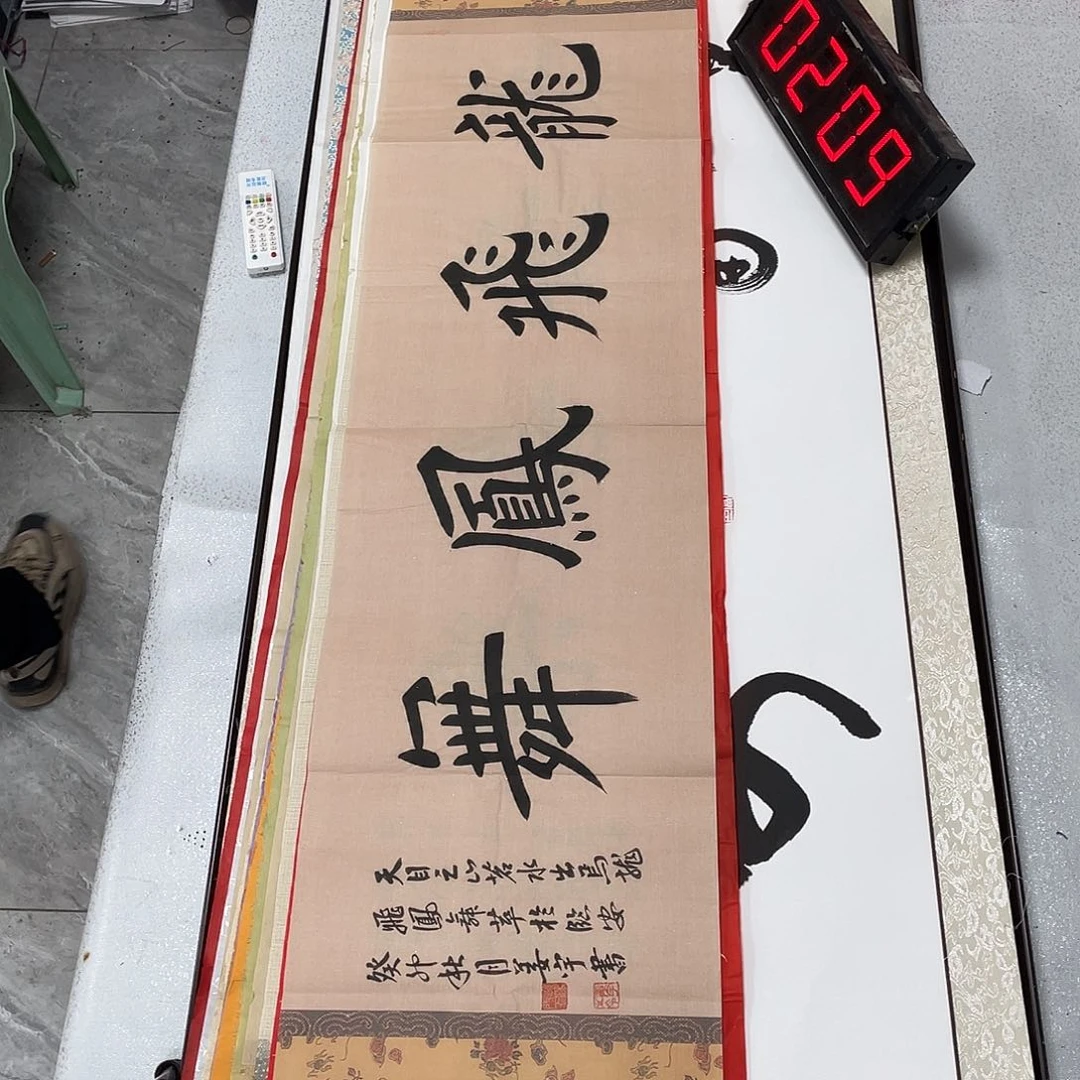 龍飛鳳舞
天目之山苕水出焉龍
飛鳳舞萃於臨安
癸卯秋月姜宇書
0209